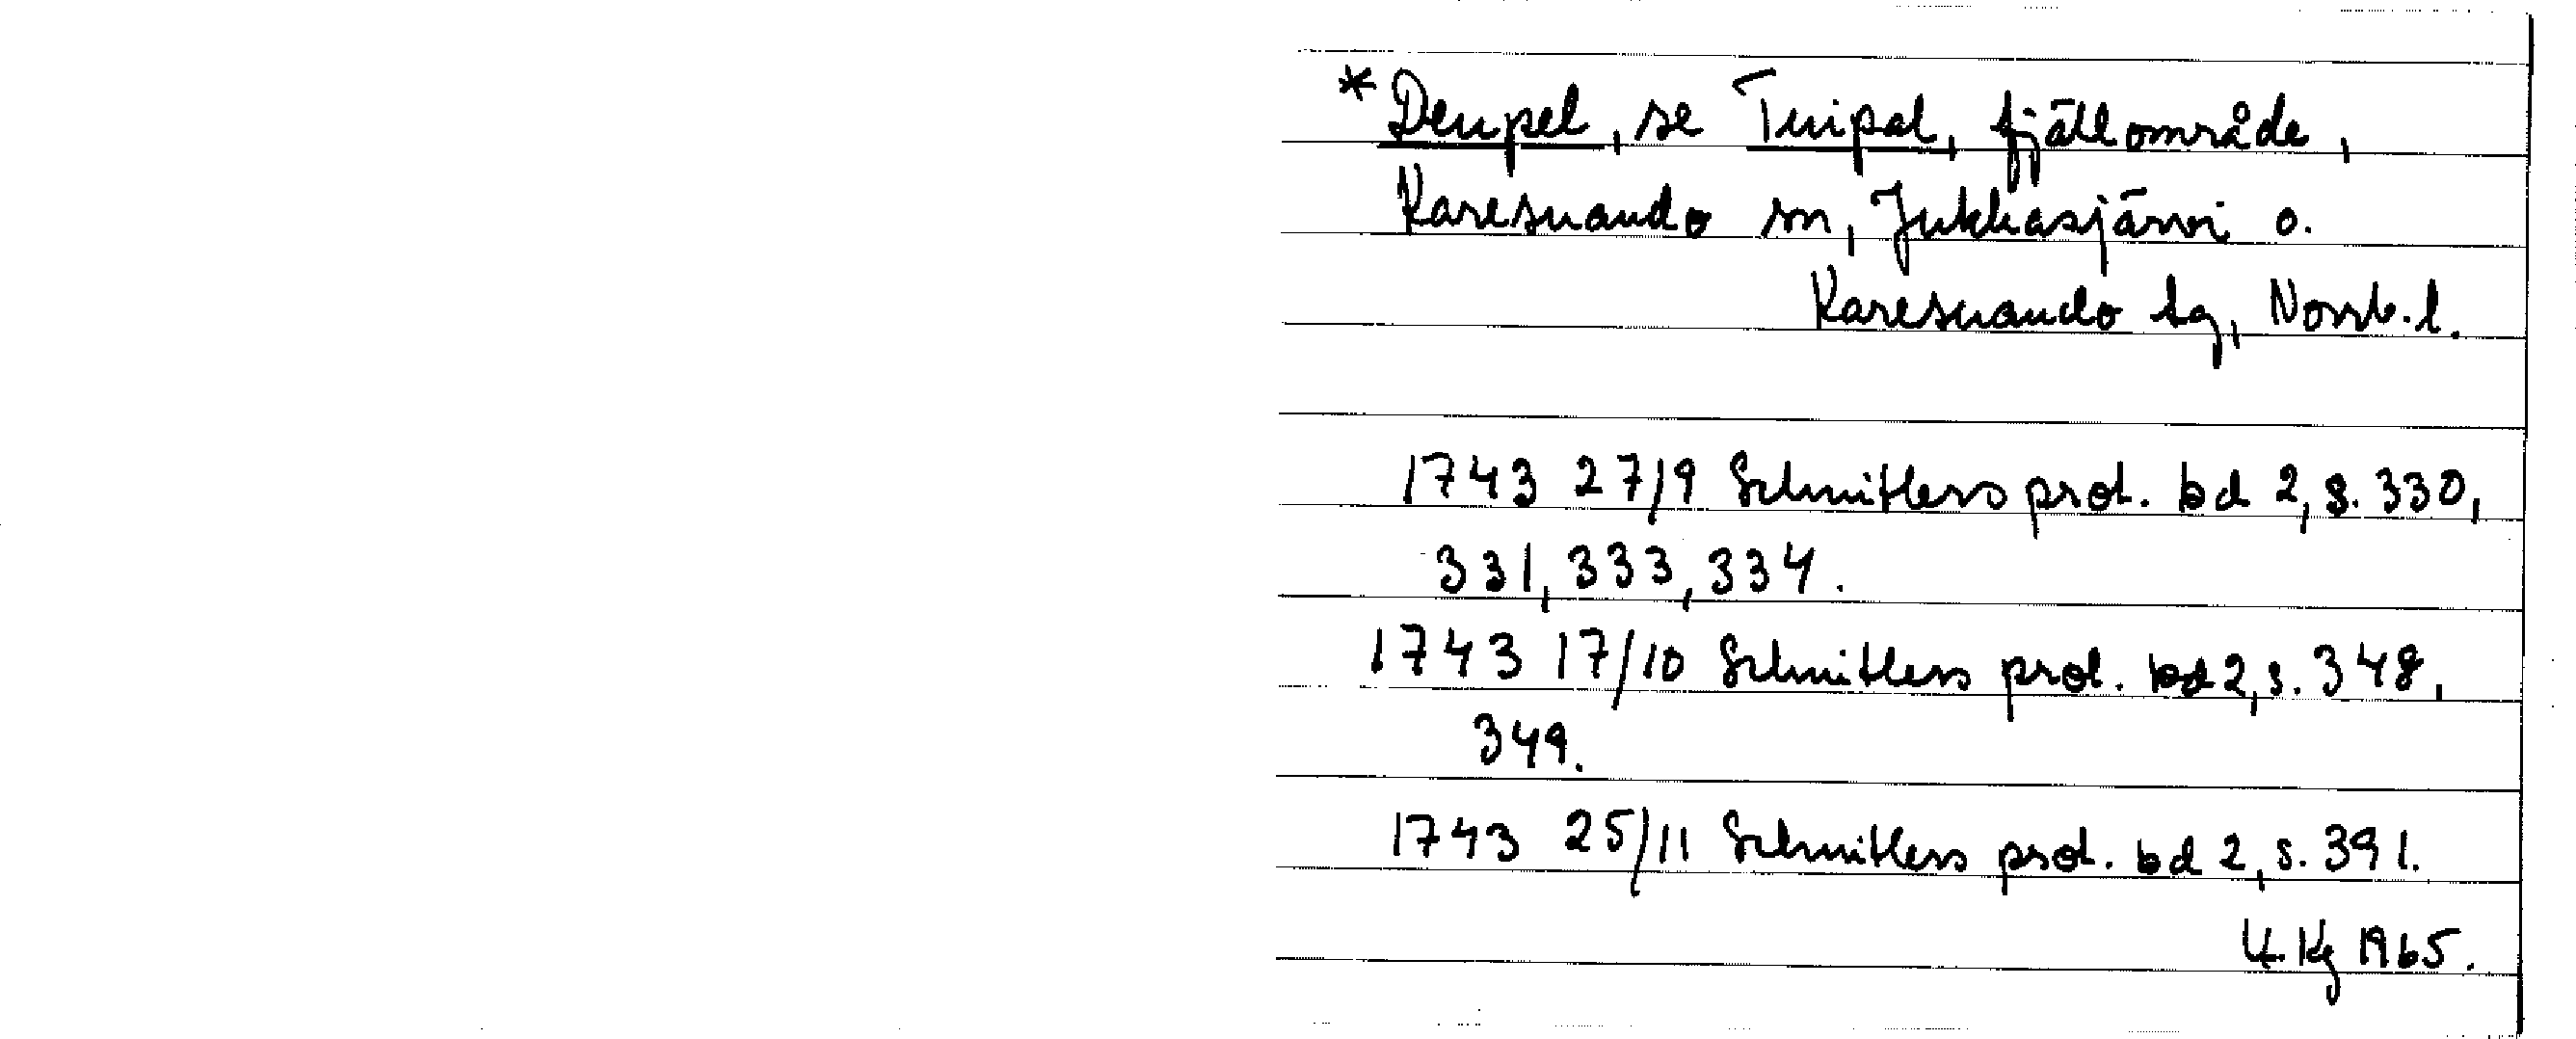 *Deupel, se Tuipal, fjällområde,
Karesuando sn, Jukkasjärvi o.
Karesuando tg, Norrb. l.
1743 27/9 Schnitlers prot. bd 2, s. 330,
331, 333, 334.
1743 17/10 Schnitlers prot. bd 2, s. 348,
349.
1743 25/11 Schnitlers prot. bd 2, s. 391.
1965.